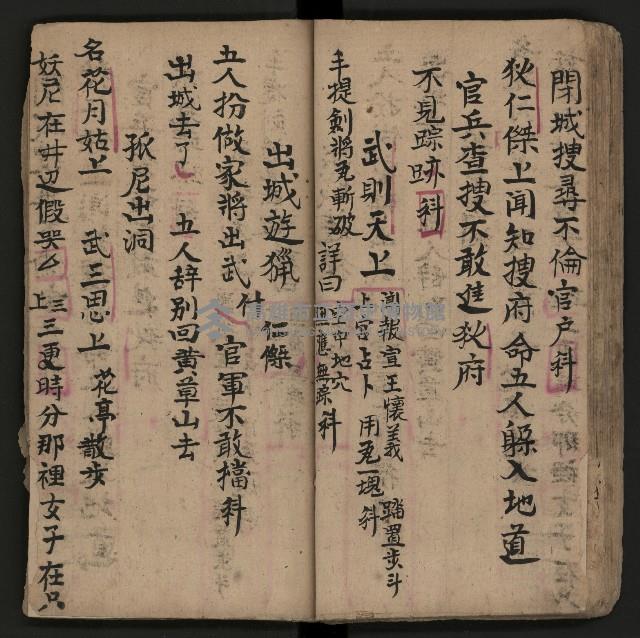 閉城搜尋不倫官户科
狄仁傑上闻知搜府命五人躲入地道
官兵查搜不敢進狄府
不見踪跡科
武則天上 報宣王懷義踏罡步斗
上宮占卜 用瓦一塊科
手提劍將瓦斬破 詳曰 中地穴
應無踪 科
出城遊獵 仁傑
五人扮做家將出武 官軍不敢擋科
出城去了 五人辞别回黄草山去
孤尼出洞
名花月姑上 武三思上 花亭散步
妖尼在井边假哭 上 三更時分那裡女子在只